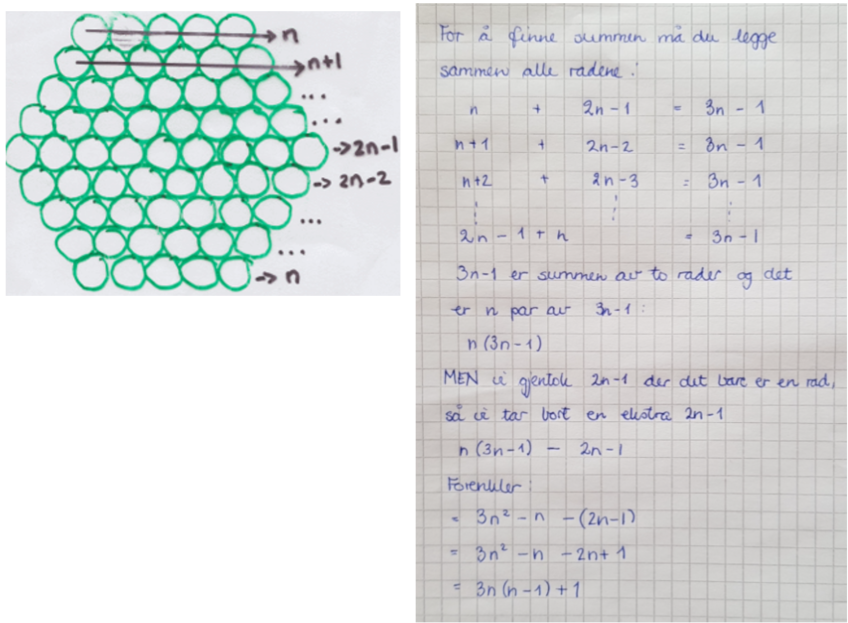 → n
→ n+1
...
...
→ 2n-1
→ 2n-2
...
...
→ n
For å finne summen må du legge
sammen alle radene:
n + 2n-1 = 3n-1
n+1 + 2n-2 = 3n-1
n+2 + 2n-3 = 3n-1
⋮ ⋮ ⋮
2n-1 + n = 3n-1
3n-1 er summen av to rader og det
er n par av 3n-1:
n(3n-1)
MEN vi gjentok 2n-1 der det bare er en rad,
så vi tar bort en ekstra 2n-1
n(3n-1) - 2n-1
Forenkler:
= 3n² - n - (2n-1)
= 3n² - n - 2n+1
= 3n(n-1)+1